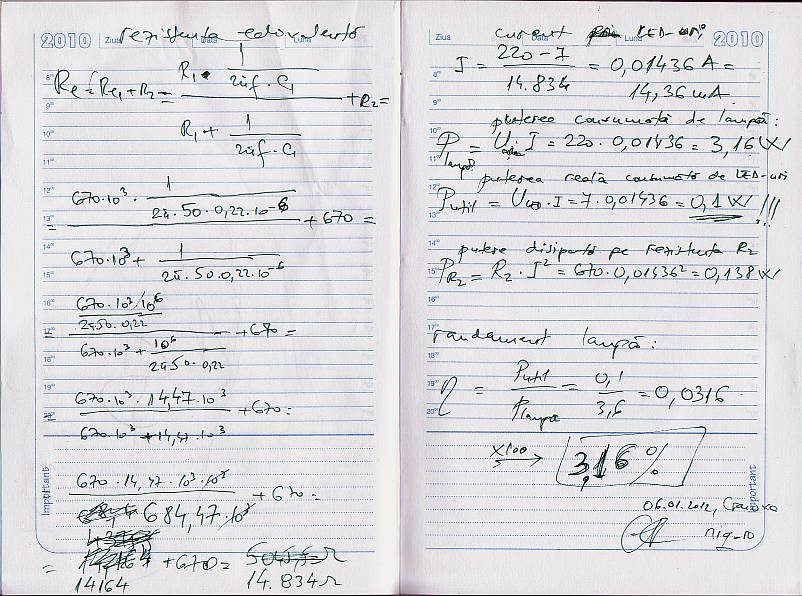 2010 Ziua Data Luna
rezistența echivalentă
Re = Re1 + R2 = (R1 · 1/(2πf · C1)) / (R1 + 1/(2πf · C1)) + R2 =
= (670·10³ · 1/(2π·50·0,22·10⁻⁶)) / (670·10³ + 1/(2π·50·0,22·10⁻⁶)) + 670 =
= (670·10³·10⁶/(2π50·0,22)) / (670·10³ + 10⁶/(2π50·0,22)) + 670 =
= (670·10³ · 14,47·10³) / (670·10³ + 14,47·10³) + 670 =
(670 · 14,47 · 10³ · 10³) / (684,47·10³) + 670 =
= 14164 + 670 = 14.834 Ω
Important
Ziua Data Luna 2010
curent prin LED-uri
I = (220 - 7) / 14.834 = 0,01436 A =
14,36 mA
puterea consumată de lampă:
P lampă = U · I = 220 · 0,01436 = 3,16 W
puterea reală consumată de LED-uri
Putil = ULED · I = 7 · 0,01436 = 0,1 W !!!
putere disipată pe rezistența R2
PR2 = R2 · I² = 670 · 0,01436² = 0,138 W
randament lampă:
η = Putil / Plampă = 0,1 / 3,6 = 0,0316
x100 → 3,16 %
06.01.2012, Craiova
niq_ro
Important